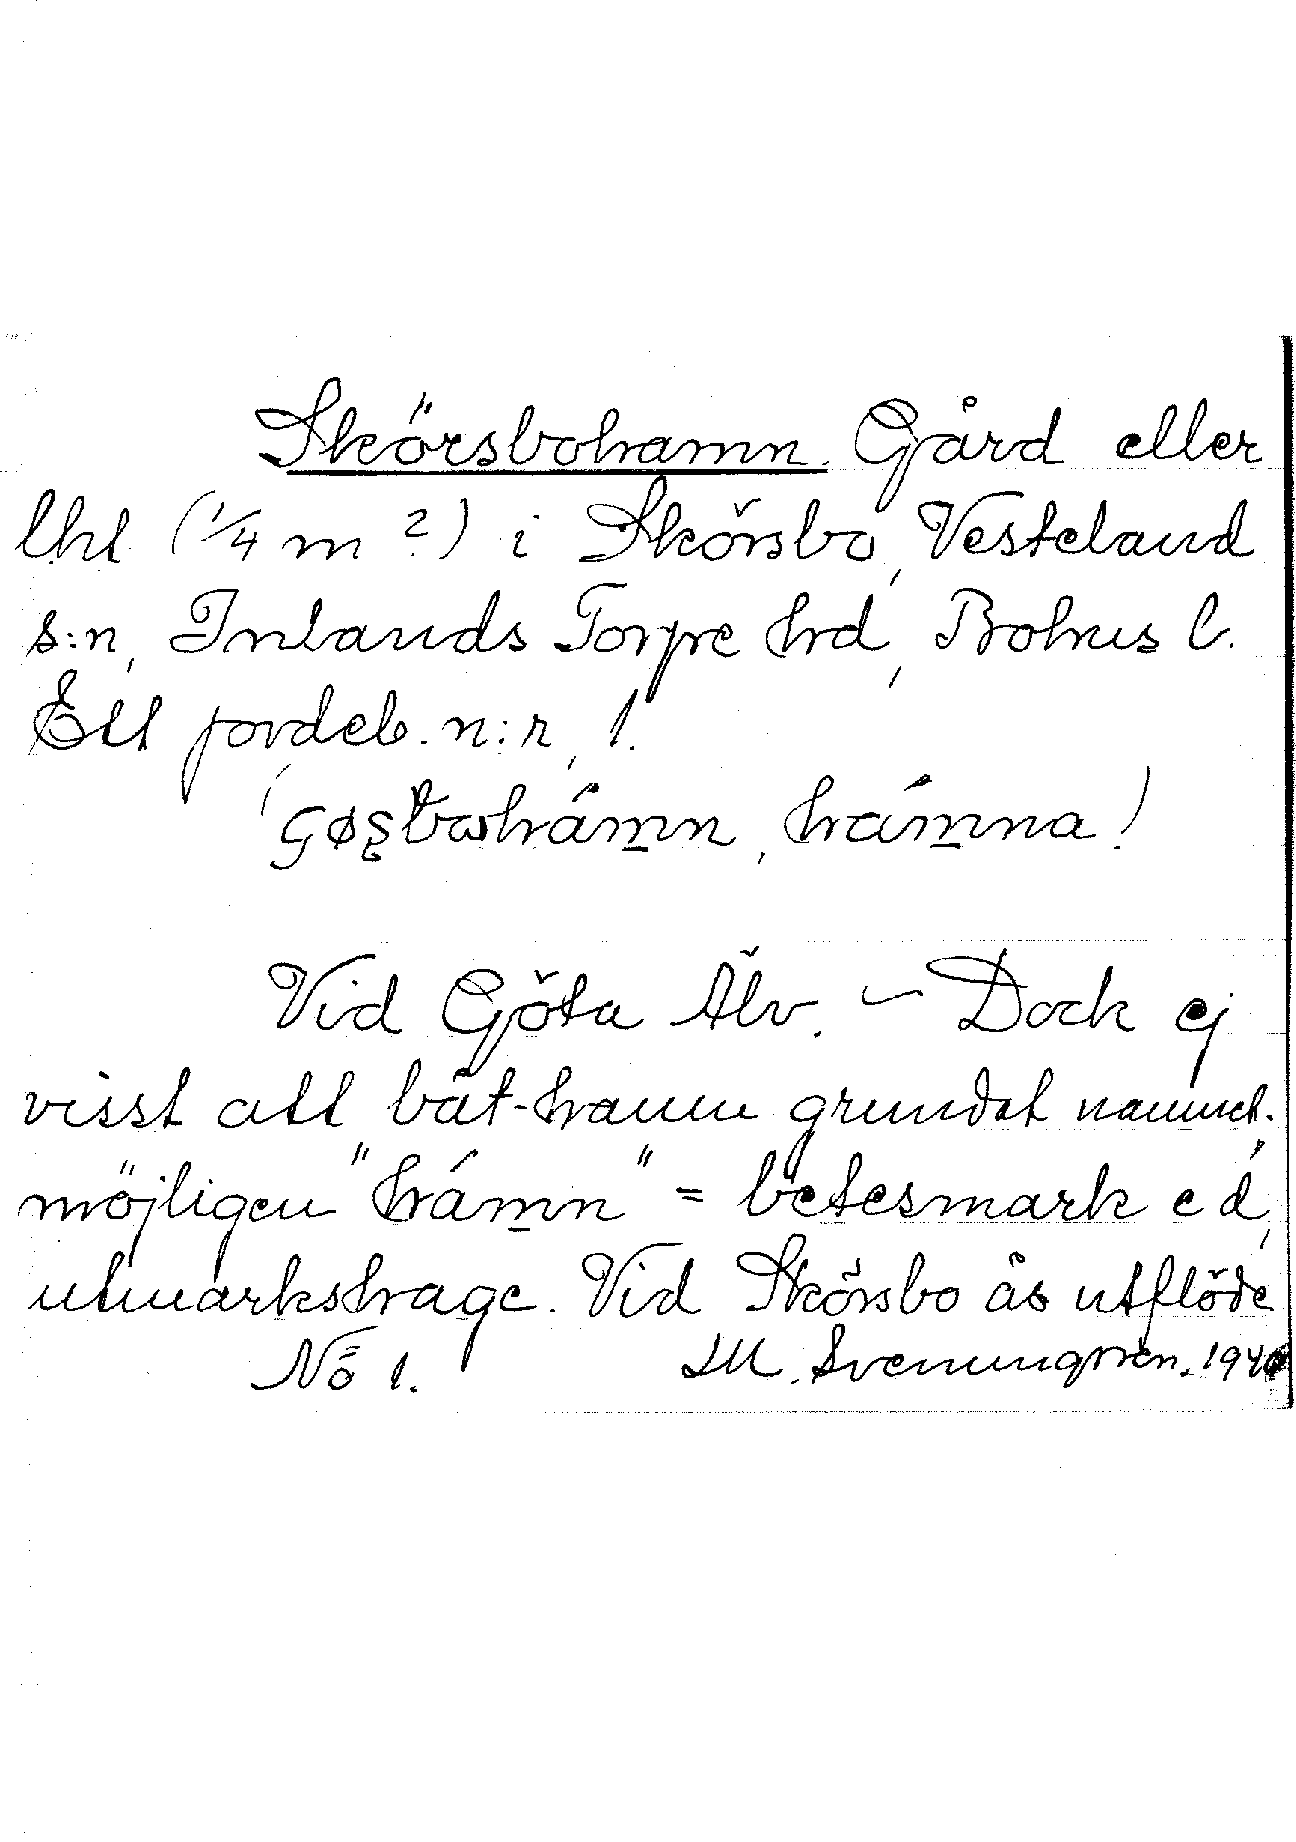 Skörsbohamn. Gård eller
lht (1/4 m ?) i Skörsbo, Vesteland
s:n, Inlands Torpe hrd, Bohus l.
Ett jordeb. n:r, 1.
hámn, hámna)
Vid Göta Älv. – Dock ej
visst att båt-hamn grundat namnet.
möjligen "hámn" = betesmark e d,
utmarkshage. Vid Skörsbo ås utflöde
No 1. M. Svenungsson. 1940